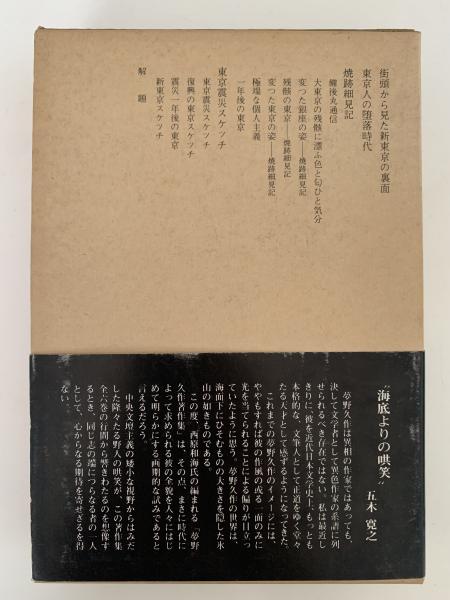 街頭から見た新東京の裏面
東京人の堕落時代
焼跡細見記
備後丸通信
大東京の残骸に漂ふ色と匂ひと気分
変つた銀座の姿——焼跡細見記
残骸の東京——焼跡細見記
変つた東京の姿——焼跡細見記
極端な個人主義
一年後の東京
東京震災スケッチ
東京震災スケッチ
復興の東京スケッチ
震災一年後の東京
新東京スケッチ
解題
“海底よりの哄笑”
五木寛之
夢野久作は異相の作家ではあっても、
決して文学者として異色作家の系譜に列
せられるべき存在ではない。私は最近し
きりに、彼を近代日本文学史上、もっとも
本格的な、文業人として正道をゆく堂々
たる天才として感ずるようになってきた。
これまでの夢野久作のイメージには、
ややもすれば彼の作風の或る一面のみに
光を当てられることによる偏りが目立っ
ていたように思う。夢野久作の世界は、
海面下にひそむものの大きさを隠した氷
山の如きものである。
この度、西原和海氏の編まれる「夢野
久作著作集」は、その点、まさに時代に
よって求められる彼の全貌を人々にはじ
めて明らかにする画期的な試みであると
言えるだろう。
中央文壇主義の矮小な視野からはみだ
した隆々たる野人の哄笑が、この著作集
全六巻の行間から響きわたるのを想像す
るとき、同じ志の端につらなる者の一人
として、心からなる期待を寄せざるを得
ない。